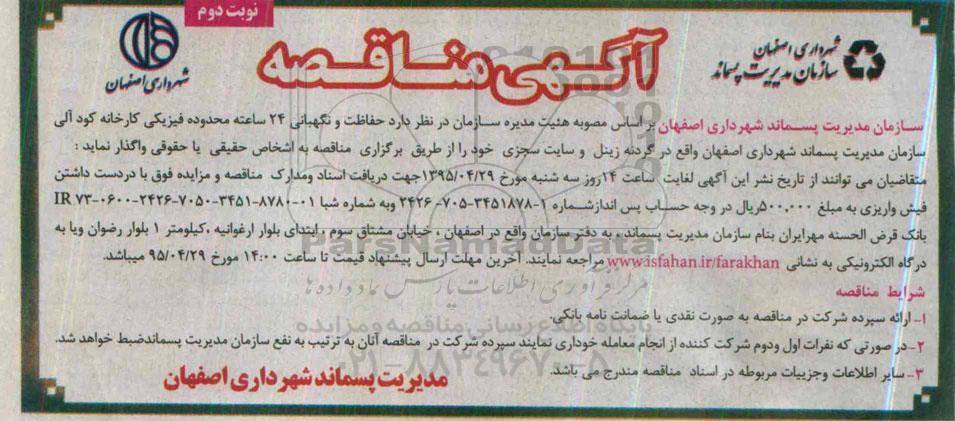 نوبت دوم
شهرداری اصفهان
سازمان مدیریت پسماند
آگهی مناقصه
شهرداری اصفهان
سازمان مدیریت پسماند شهرداری اصفهان بر اساس مصوبه هئیت مدیره سازمان در نظر دارد حفاظت و نگهبانی ۲۴ ساعته محدوده فیزیکی کارخانه کود آلی
سازمان مدیریت پسماند شهرداری اصفهان واقع در گردنه زینل و سایت سجزی خود را از طریق برگزاری مناقصه به اشخاص حقیقی یا حقوقی واگذار نماید :
متقاضیان می توانند از تاریخ نشر این آگهی لغایت ساعت ۱۴روز سه شنبه مورخ ۱۳۹۵/۰۴/۲۹جهت دریافت اسناد ومدارک مناقصه و مزایده فوق با دردست داشتن
فیش واریزی به مبلغ ۵۰۰,۰۰۰ریال در وجه حساب پس اندازشماره ۱-۳۴۵۱۸۷۸-۷۰۵-۲۴۲۶ وبه شماره شبا ۰۱-۸۷۸۰-۳۴۵۱-۷۰۵۰-۲۴۲۶-۰۶۰۰-۷۳ IR
بانک قرض الحسنه مهرایران بنام سازمان مدیریت پسماند، به دفتر سازمان واقع در اصفهان ، خیابان مشتاق سوم ، ابتدای بلوار ارغوانیه ،کیلومتر ۱ بلوار رضوان ویا به
درگاه الکترونیکی به نشانی www.isfahan.ir/farakhan مراجعه نمایند. آخرین مهلت ارسال پیشنهاد قیمت تا ساعت ۱۴:۰۰ مورخ ۹۵/۰۴/۲۹ میباشد.
شرایط مناقصه
۱- ارائه سپرده شرکت در مناقصه به صورت نقدی یا ضمانت نامه بانکی.
۲-در صورتی که نفرات اول ودوم شرکت کننده از انجام معامله خوداری نمایند سپرده شرکت در مناقصه آنان به ترتیب به نفع سازمان مدیریت پسماندضبط خواهد شد.
۳-سایر اطلاعات وجزییات مربوطه در اسناد مناقصه مندرج می باشد.
مدیریت پسماند شهرداری اصفهان
ParsNamadData
مرکز فرآوری اطلاعات پارس نماد داده ها
پایگاه اطلاع رسانی مناقصه و مزایده
۰۲۱-۸۸۳۴۹۶۷۰-۵